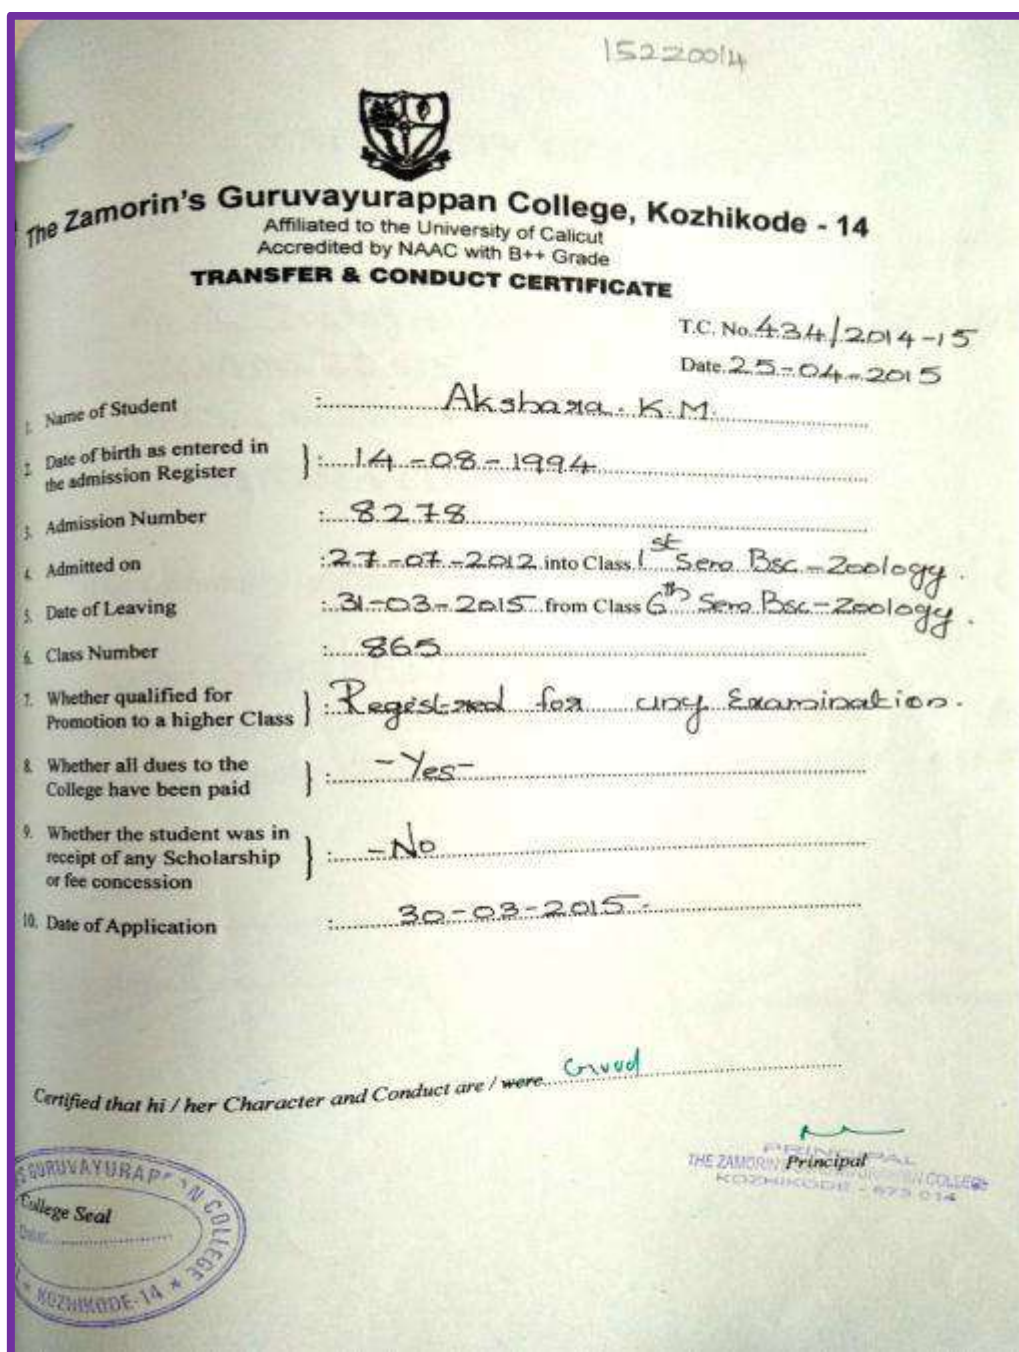 15220014
The Zamorin's Guruvayurappan College, Kozhikode - 14
Affiliated to the University of Calicut
Accredited by NAAC with B++ Grade
TRANSFER & CONDUCT CERTIFICATE
T.C. No. 434/2014-15
Date. 25-04-2015
1. Name of Student : Akshara. K.M.
2. Date of birth as entered in
the admission Register } : 14-08-1994
3. Admission Number : 8278
4. Admitted on : 27-07-2012 into Class 1st Sem Bsc-Zoology.
5. Date of Leaving : 31-03-2015 from Class 6th Sem Bsc-Zoology.
6. Class Number : 865
7. Whether qualified for
Promotion to a higher Class } : Registered for uny Examination.
8. Whether all dues to the
College have been paid } : -Yes-
9. Whether the student was in
receipt of any Scholarship
or fee concession } : -No
10. Date of Application : 30-03-2015-
Certified that hi / her Character and Conduct are / were Good
PRINCIPAL
Principal
THE ZAMORIN COLLEGE
KOZHIKODE - 673 014
GURUVAYURAPPAN COLLEGE
College Seal
Date
* KOZHIKODE-14 *